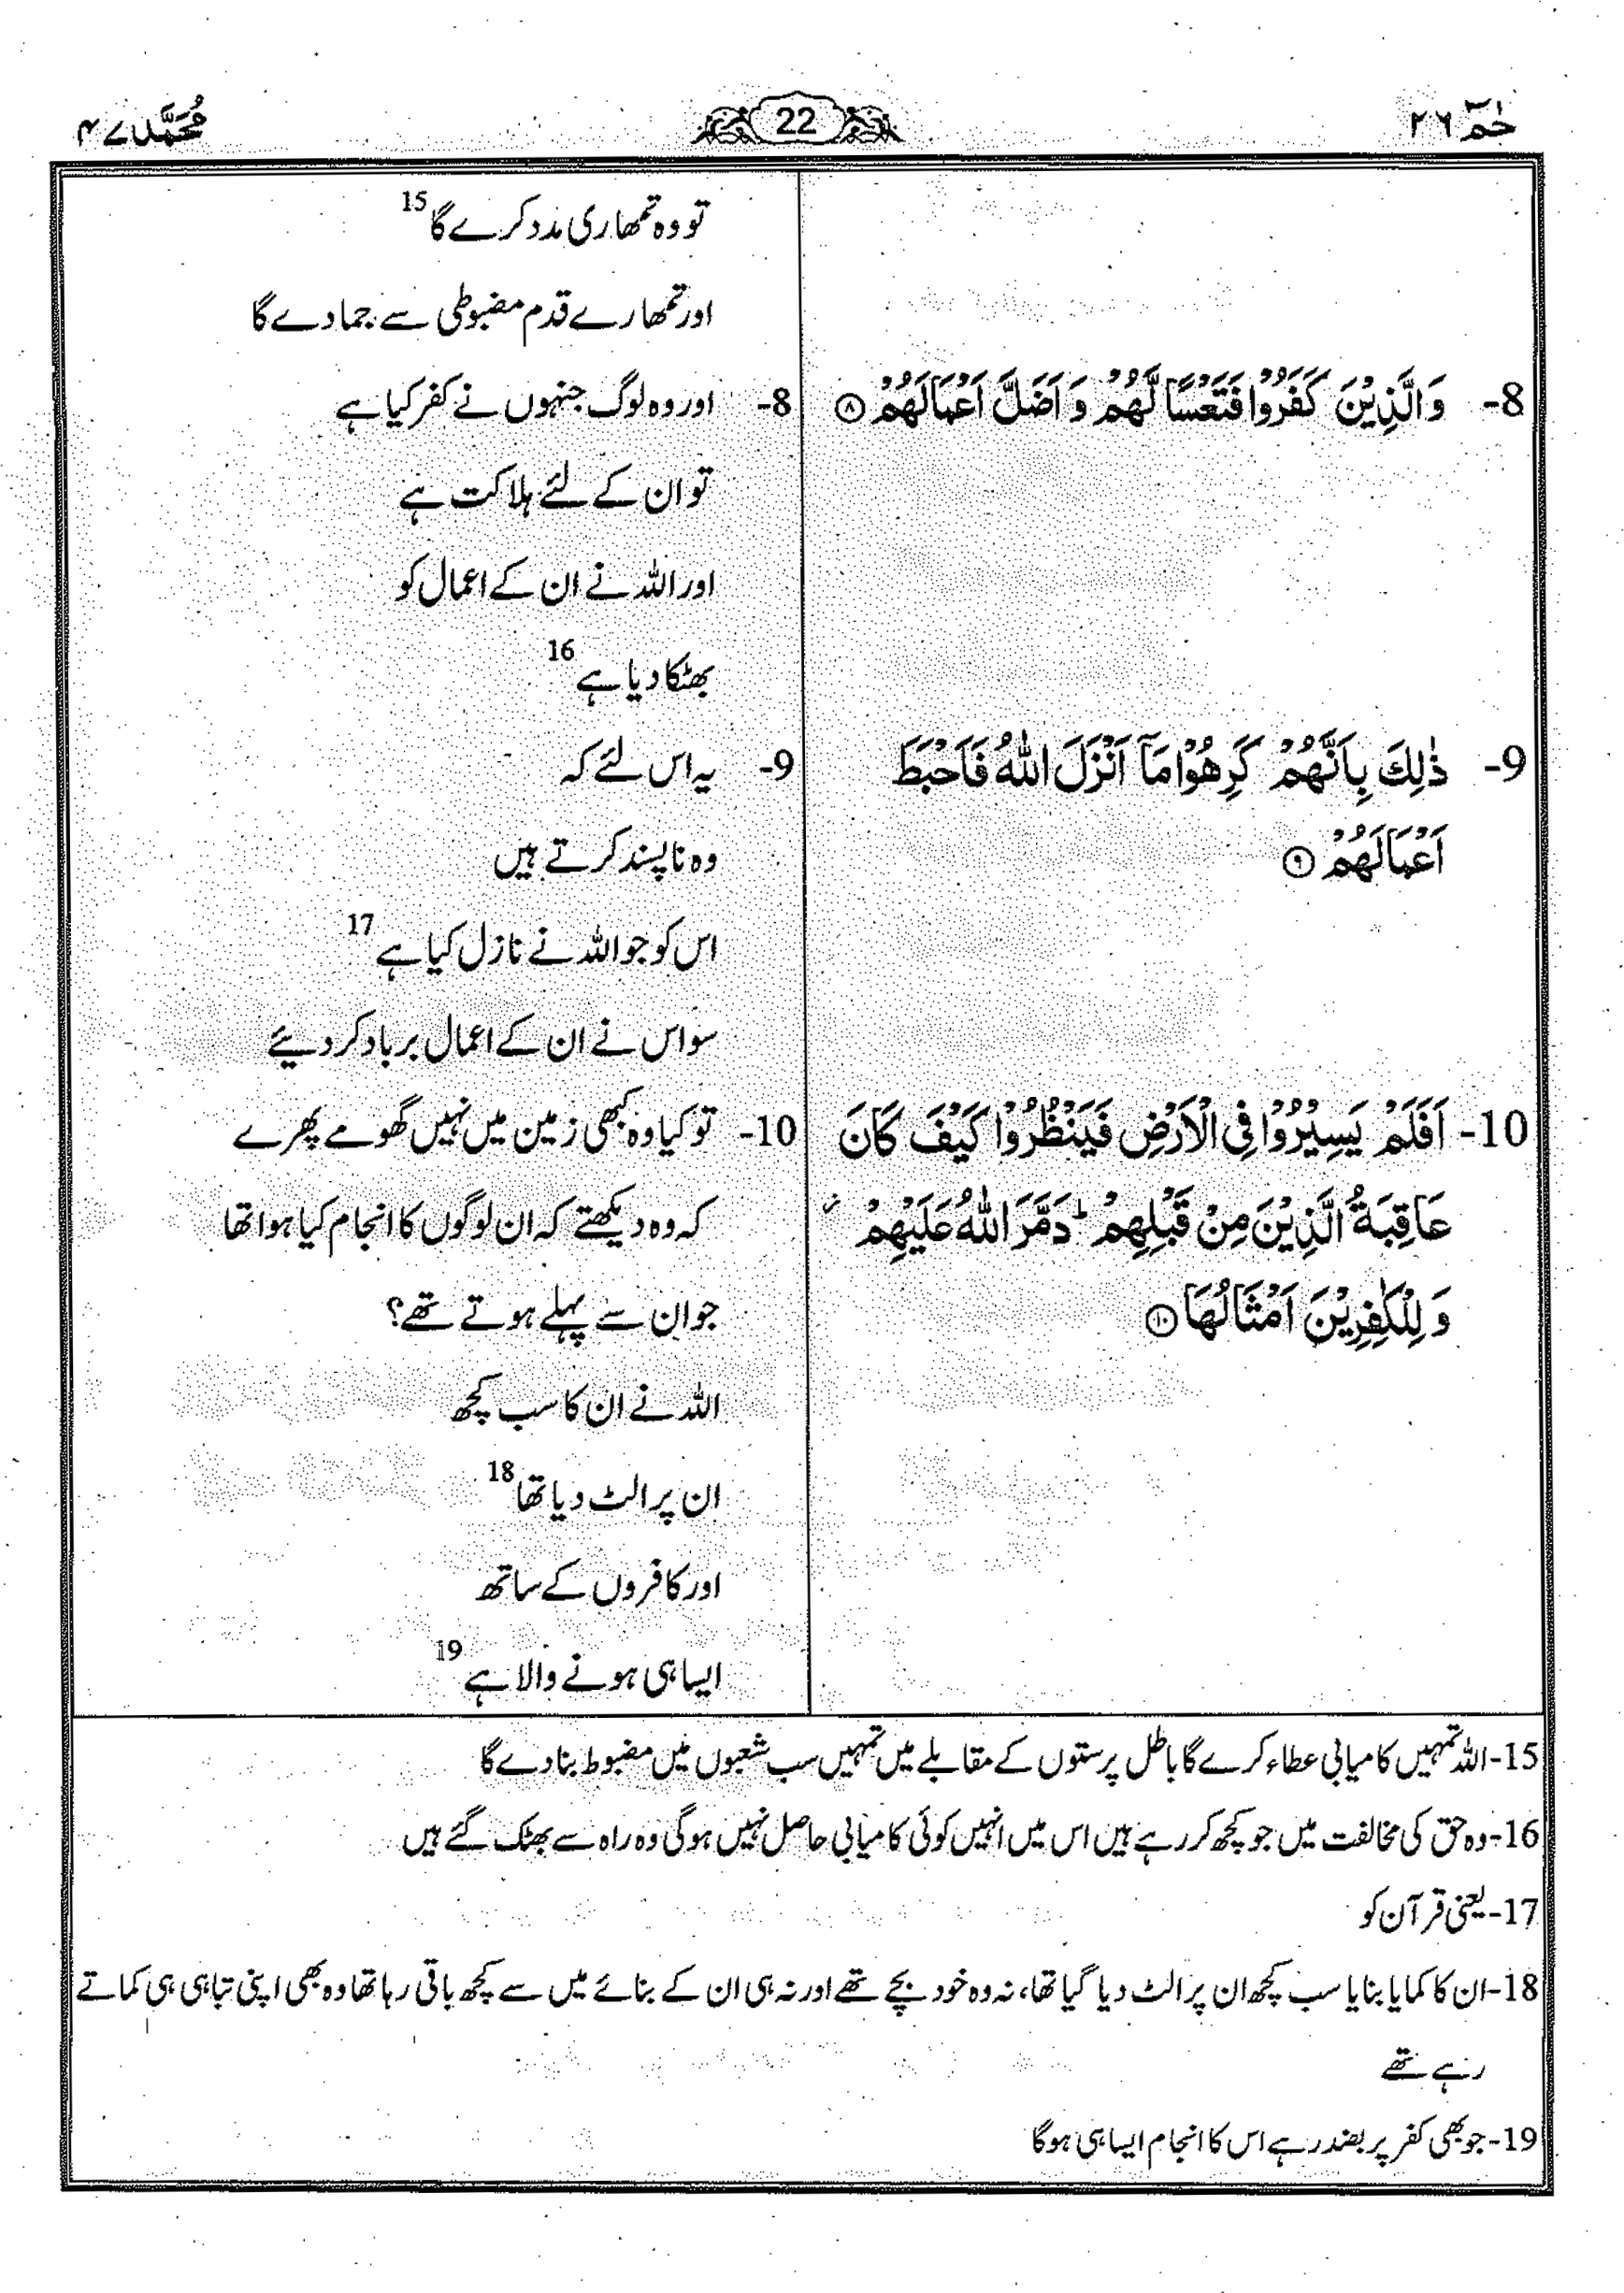 حٰمٓ ٢٦
22
مُحَمَّد ٤٧
تو وہ تمھاری مدد کرے گا 15
اور تمھارے قدم مضبوطی سے جما دے گا
8- وَالَّذِيْنَ كَفَرُوْا فَتَعْسًا لَّهُمْ وَ اَضَلَّ اَعْمَالَهُمْ ﴿٨﴾
8- اور وہ لوگ جنہوں نے کفر کیا ہے
تو ان کے لئے ہلاکت ہے
اور اللہ نے ان کے اعمال کو
بھٹکا دیا ہے 16
9- ذٰلِكَ بِاَنَّهُمْ كَرِهُوْا مَاۤ اَنْزَلَ اللّٰهُ فَاَحْبَطَ
اَعْمَالَهُمْ ﴿٩﴾
9- یہ اس لئے کہ
وہ ناپسند کرتے ہیں
اس کو جو اللہ نے نازل کیا ہے 17
سو اس نے ان کے اعمال برباد کر دیئے
10- اَفَلَمْ يَسِيْرُوْا فِي الْاَرْضِ فَيَنْظُرُوْا كَيْفَ كَانَ
عَاقِبَةُ الَّذِيْنَ مِنْ قَبْلِهِمْ ؕ دَمَّرَ اللّٰهُ عَلَيْهِمْ ؗ
وَ لِلْكٰفِرِيْنَ اَمْثَالُهَا ﴿١٠﴾
10- تو کیا وہ کبھی زمین میں نہیں گھومے پھرے
کہ وہ دیکھتے کہ ان لوگوں کا انجام کیا ہوا تھا
جو ان سے پہلے ہوتے تھے؟
اللہ نے ان کا سب کچھ
ان پر الٹ دیا تھا 18
اور کافروں کے ساتھ
ایسا ہی ہونے والا ہے 19
15- اللہ تمہیں کامیابی عطاء کرے گا باطل پرستوں کے مقابلے میں تمہیں سب شعبوں میں مضبوط بنا دے گا
16- وہ حق کی مخالفت میں جو کچھ کر رہے ہیں اس میں انہیں کوئی کامیابی حاصل نہیں ہوگی وہ راہ سے بھٹک گئے ہیں
17- یعنی قرآن کو
18- ان کا کمایا بنایا سب کچھ ان پر الٹ دیا گیا تھا، نہ وہ خود بچے تھے اور نہ ہی ان کے بنائے میں سے کچھ باقی رہا تھا وہ بھی اپنی تباہی ہی کماتے
رہے تھے
19- جو بھی کفر پر بضد رہے اس کا انجام ایسا ہی ہوگا